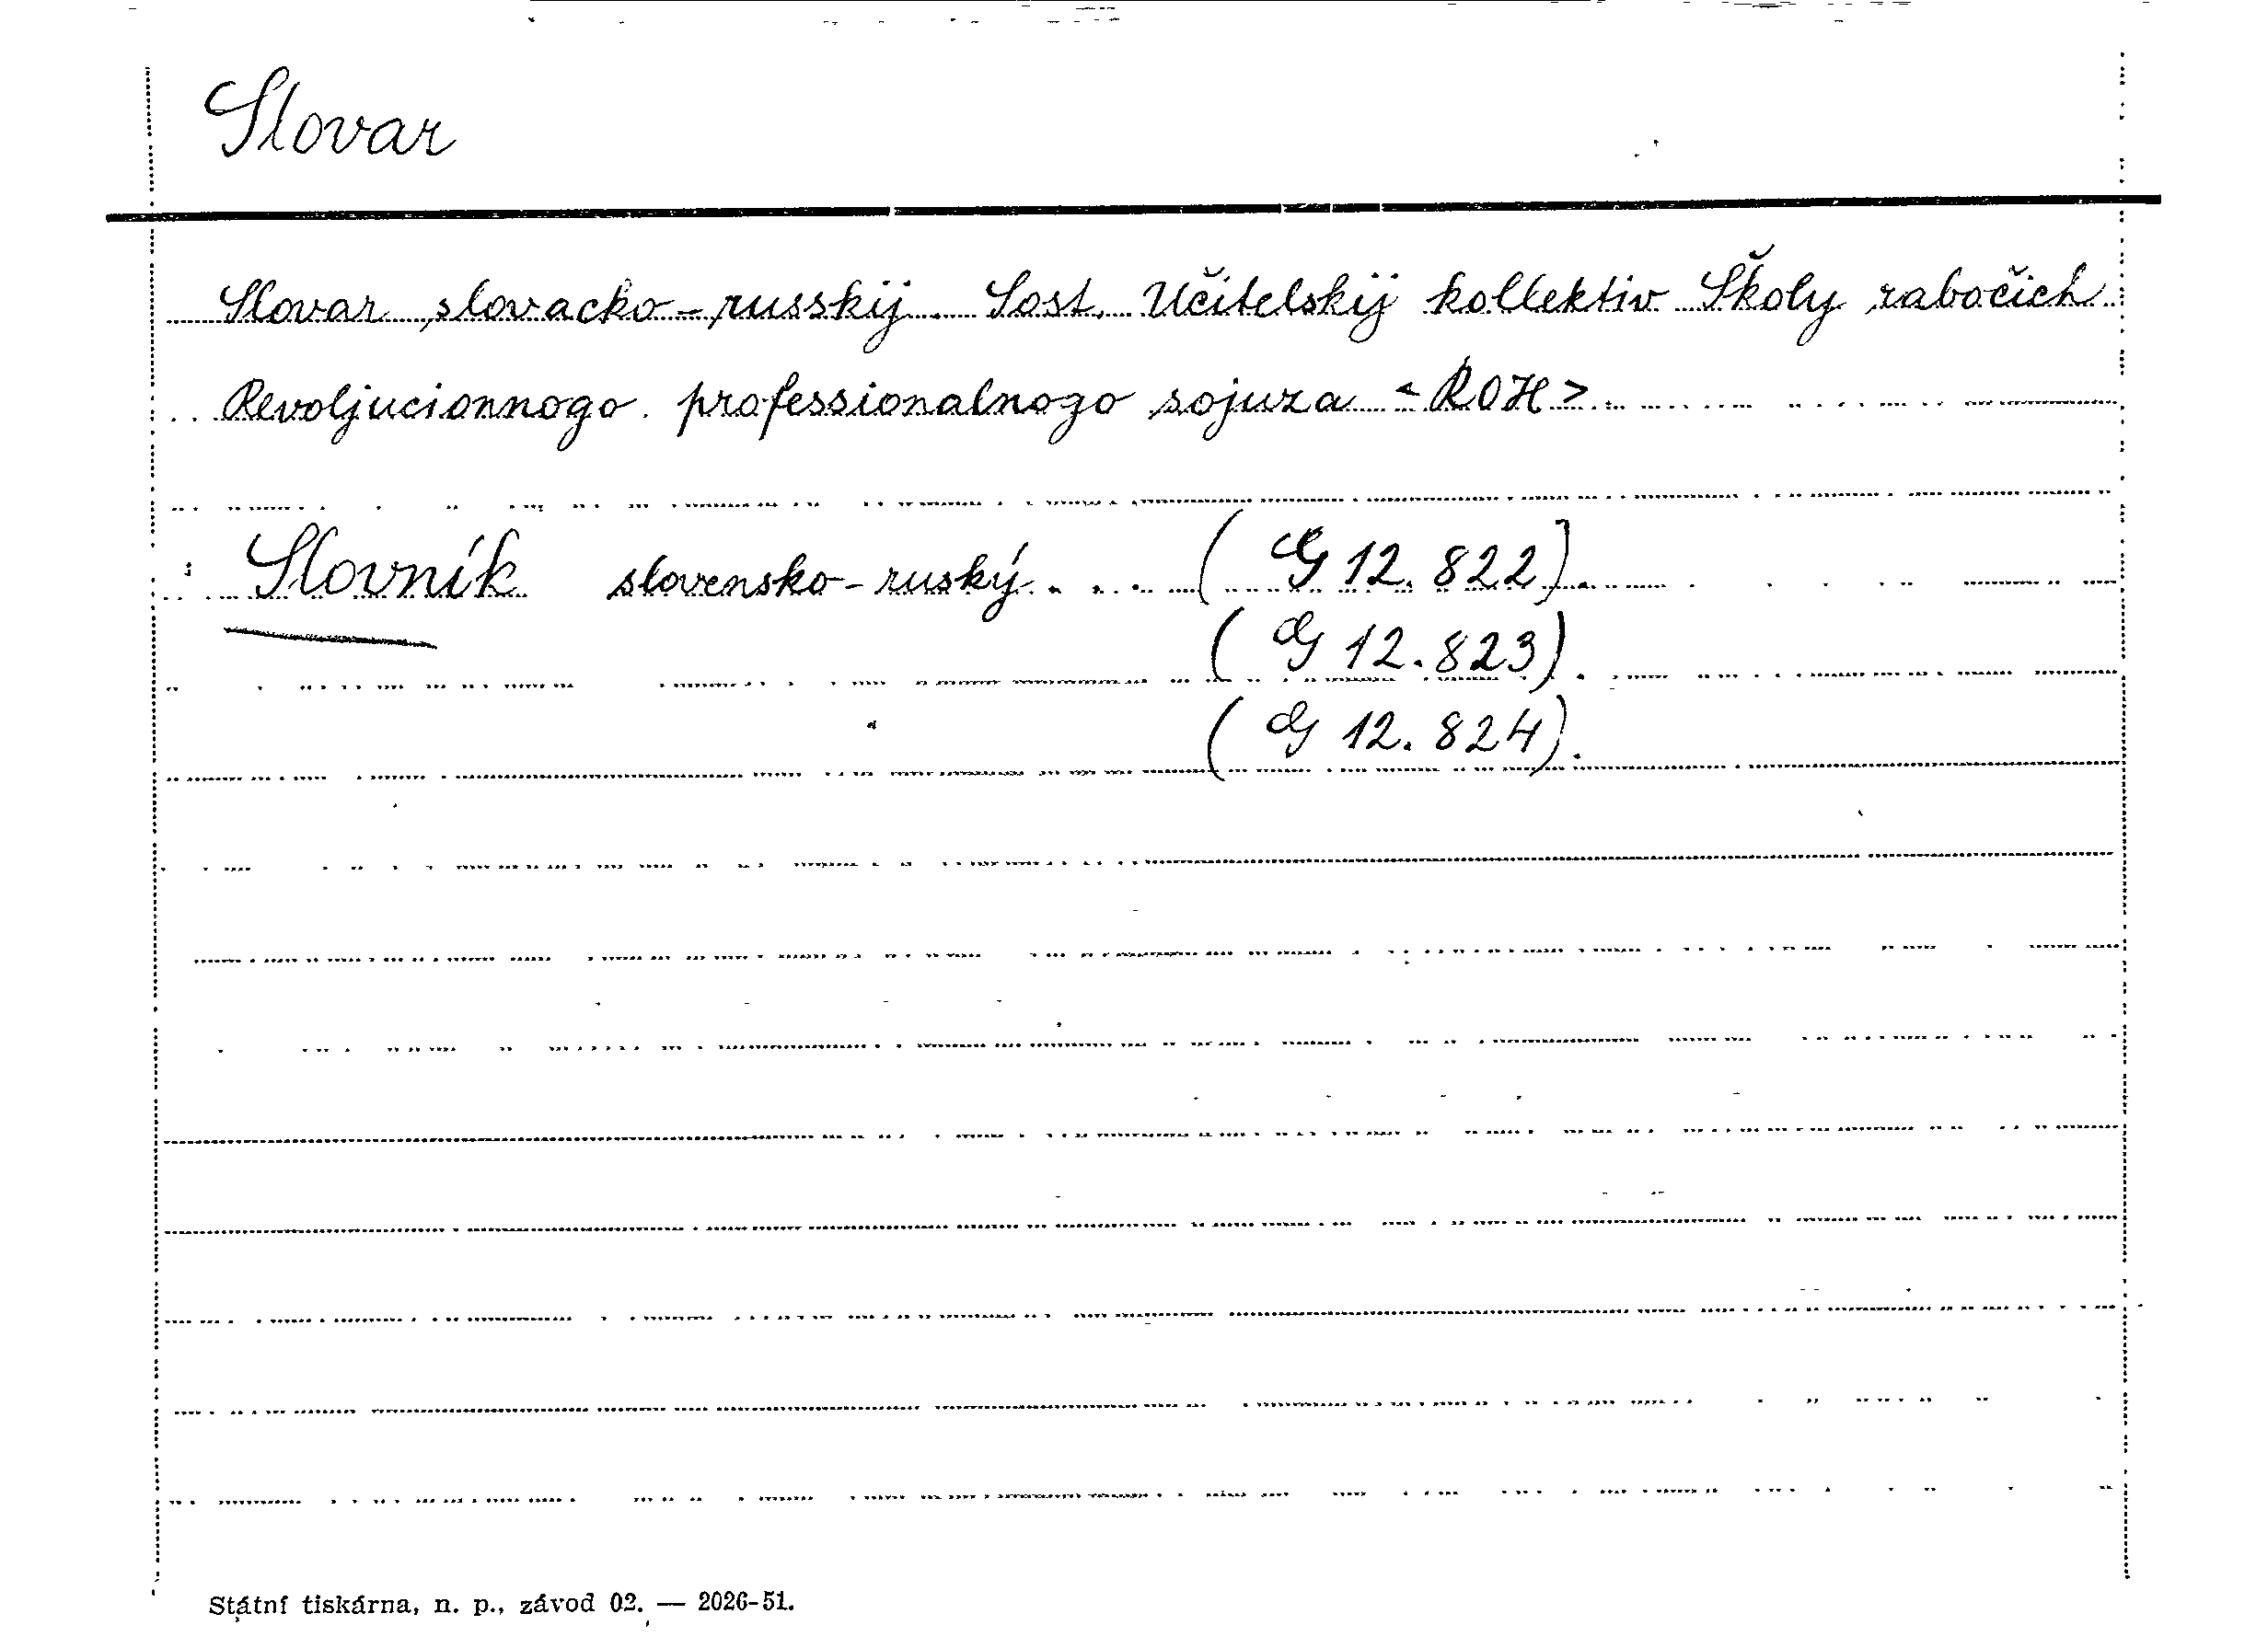 Slovar
Slovar slovacko-russkij. Sost. Učitelskij kollektiv Školy rabočich
Revoljucionnogo professionalnogo sojuza <ROH>.
Slovník slovensko-ruský.... (G 12.822].
(G 12.823).
(G 12.824).
Státní tiskárna, n. p., závod 02. — 2026-51.